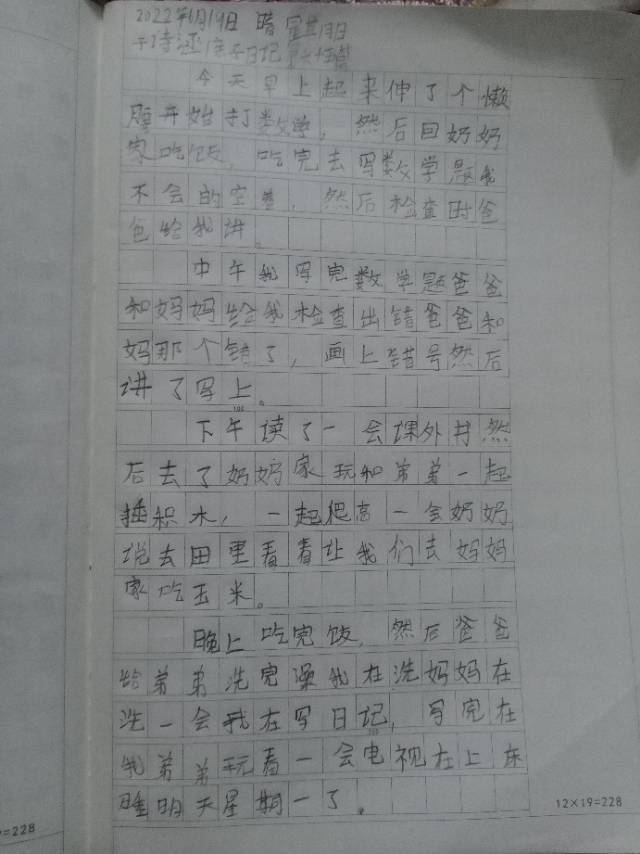 2022年6月19日 晴 星期日
亲子日记第六十五篇
今天早上起来伸了个懒
腰开始打数学,然后回奶奶
家吃饭,吃完去写数学题我
不会的空着,然后检查时爸
爸给我讲。
中午我写完数学题爸爸
和妈妈给我检查出错爸爸和
妈那个错了,画上错号然后
讲了写上。
下午读了一会课外书然
后去了奶奶家玩和弟弟一起
捶积木,一起爬高一会奶奶
说去田里看看让我们去妈妈
家吃玉米。
晚上吃完饭,然后爸爸
给弟弟洗完澡我在洗妈妈在
洗一会我在写日记,写完在
我弟弟玩看一会电视在上床
睡明天星期一了。
12×19=228
=228